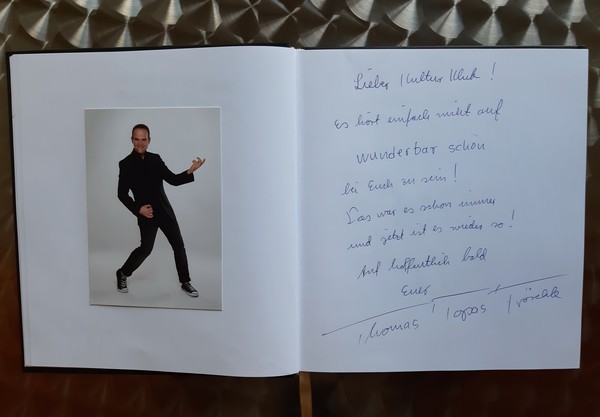 Lieber Kultur Klub!
Es hört einfach nicht auf
wunderbar schön
bei Euch zu sein!
Das war es schon immer
und jetzt ist es wieder so!
Auf hoffentlich bald
Euer
Thomas Topas Fröschle